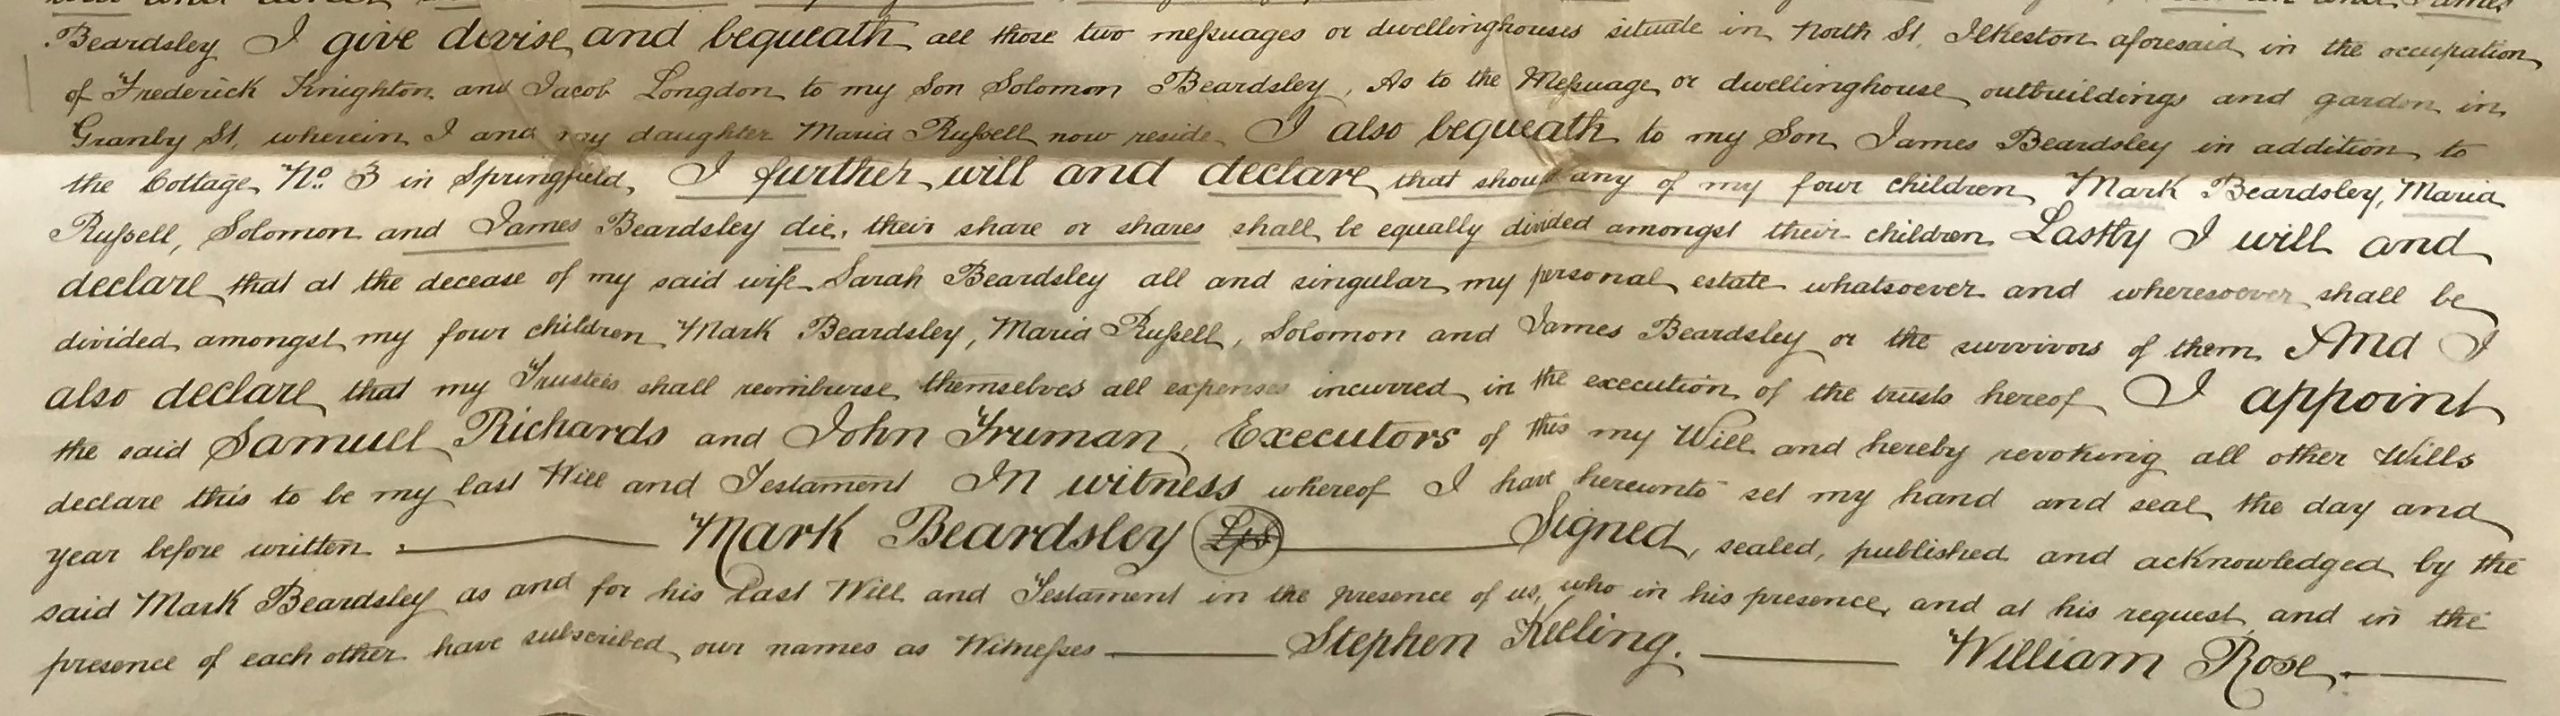 Beardsley I give devise and bequeath all those two meſsuages or dwellinghouses situate in North St. Ilkeston aforesaid in the occupation
of Frederick Knighton and Jacob Longdon to my Son Solomon Beardsley, As to the Meſsuage or dwellinghouse outbuildings and garden in
Granby St, wherein I and my daughter Maria Ruſsell now reside I also bequeath to my Son James Beardsley in addition to
the Cottage No. 3 in Springfield, I further will and declare that should any of my four children Mark Beardsley, Maria
Ruſsell, Solomon and James Beardsley die, their share or shares shall be equally divided amongst their children Lastly I will and
declare that at the decease of my said wife Sarah Beardsley all and singular my personal estate whatsoever and wheresoever shall be
divided amongst my four children Mark Beardsley, Maria Ruſsell, Solomon and James Beardsley or the survivors of them And I
also declare that my Trustees shall reimburse themselves all expenses incurred in the execution of the trusts hereof I appoint
the said Samuel Richards and John Truman, Executors of this my Will and hereby revoking all other Wills
declare this to be my last Will and Testament In witness whereof I have hereunto set my hand and seal the day and
year before written : Mark Beardsley Signed, sealed, published and acknowledged by the
said Mark Beardsley as and for his last Will and Testament in the presence of us, who in his presence, and at his request and in the
presence of each other have subscribed our names as Witneſses Stephen Keeling. William Rose.